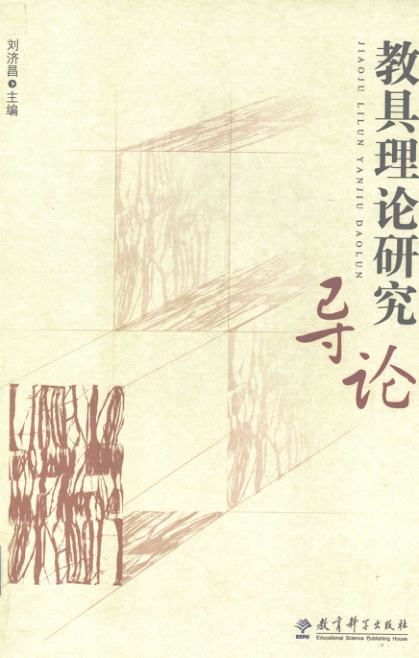 教具理论研究
导论
JIAOJU LILUN YANJIU DAOLUN
刘济昌 主编
教育科学出版社
ESPH
Educational Science Publishing House